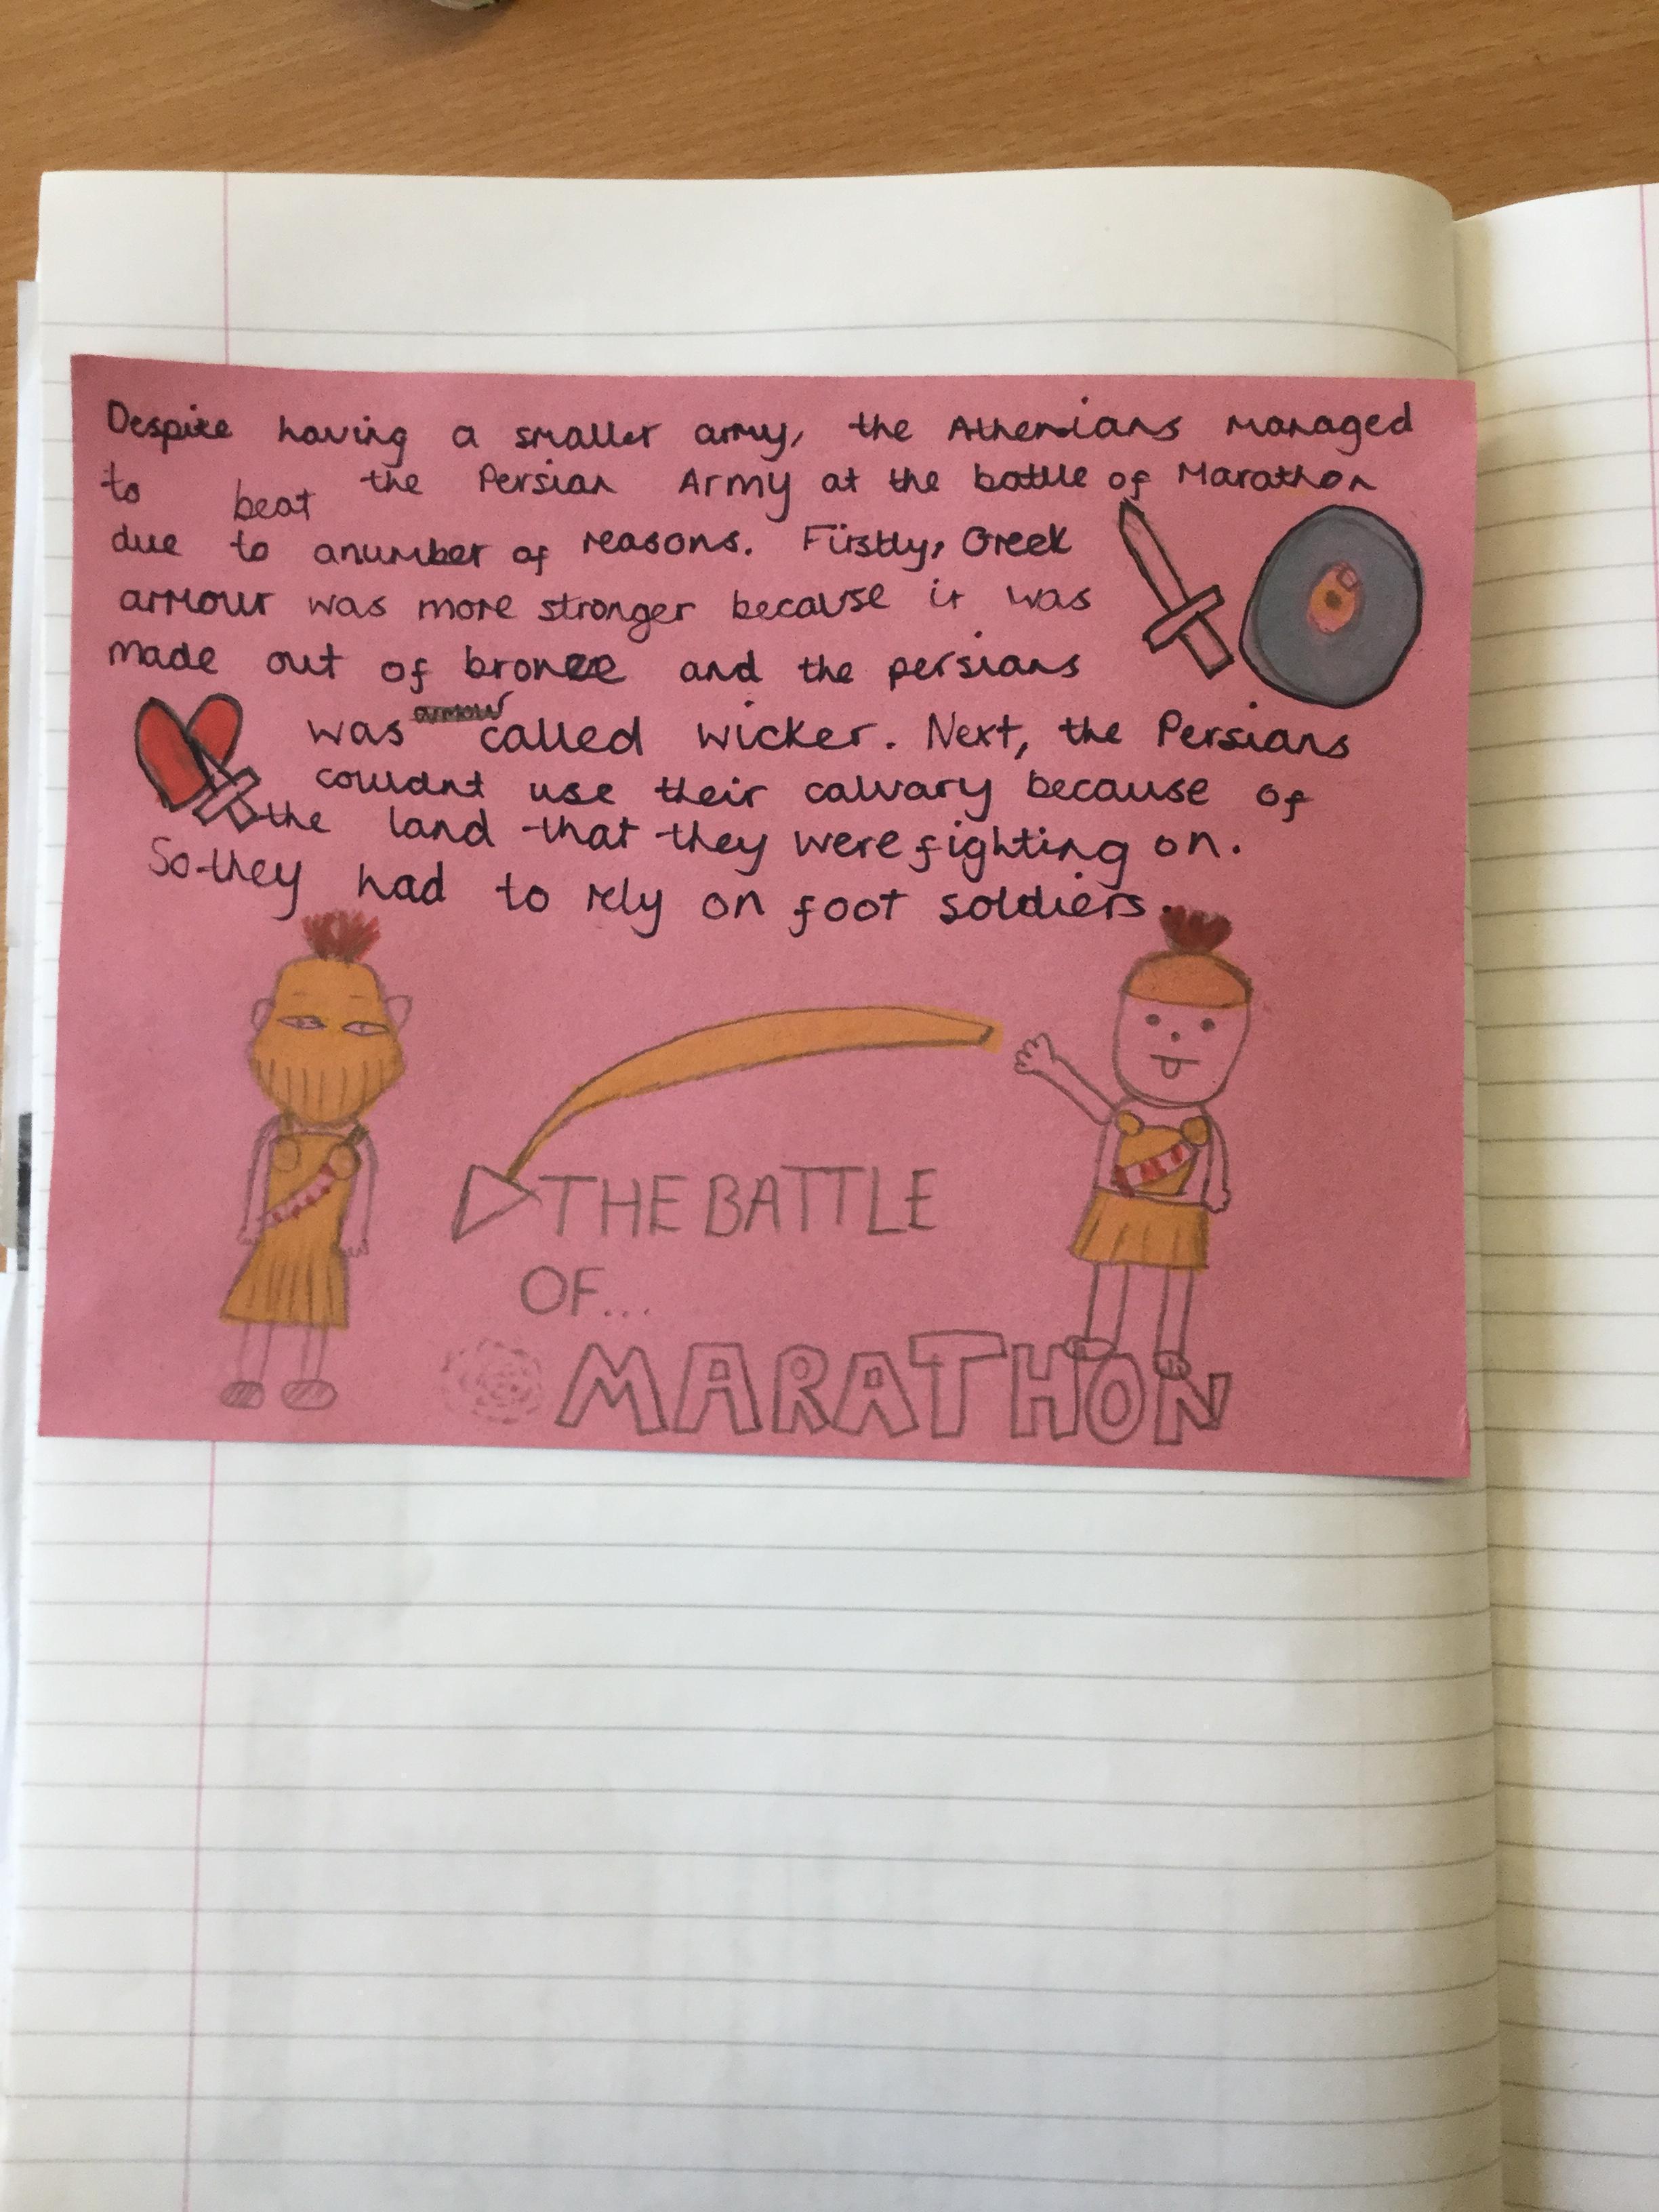 Despite having a smaller army, the Athenians managed
to beat the Persian Army at the battle of Marathon
due to anumber of reasons. Firstly, Greek
armour was more stronger because it was
made out of bronze and the persians
armour
was called wicker. Next, the Persians
couldnt use their calvary because of
the land that they were fighting on.
So they had to rely on foot soldiers.
THE BATTLE
OF...
MARATHON